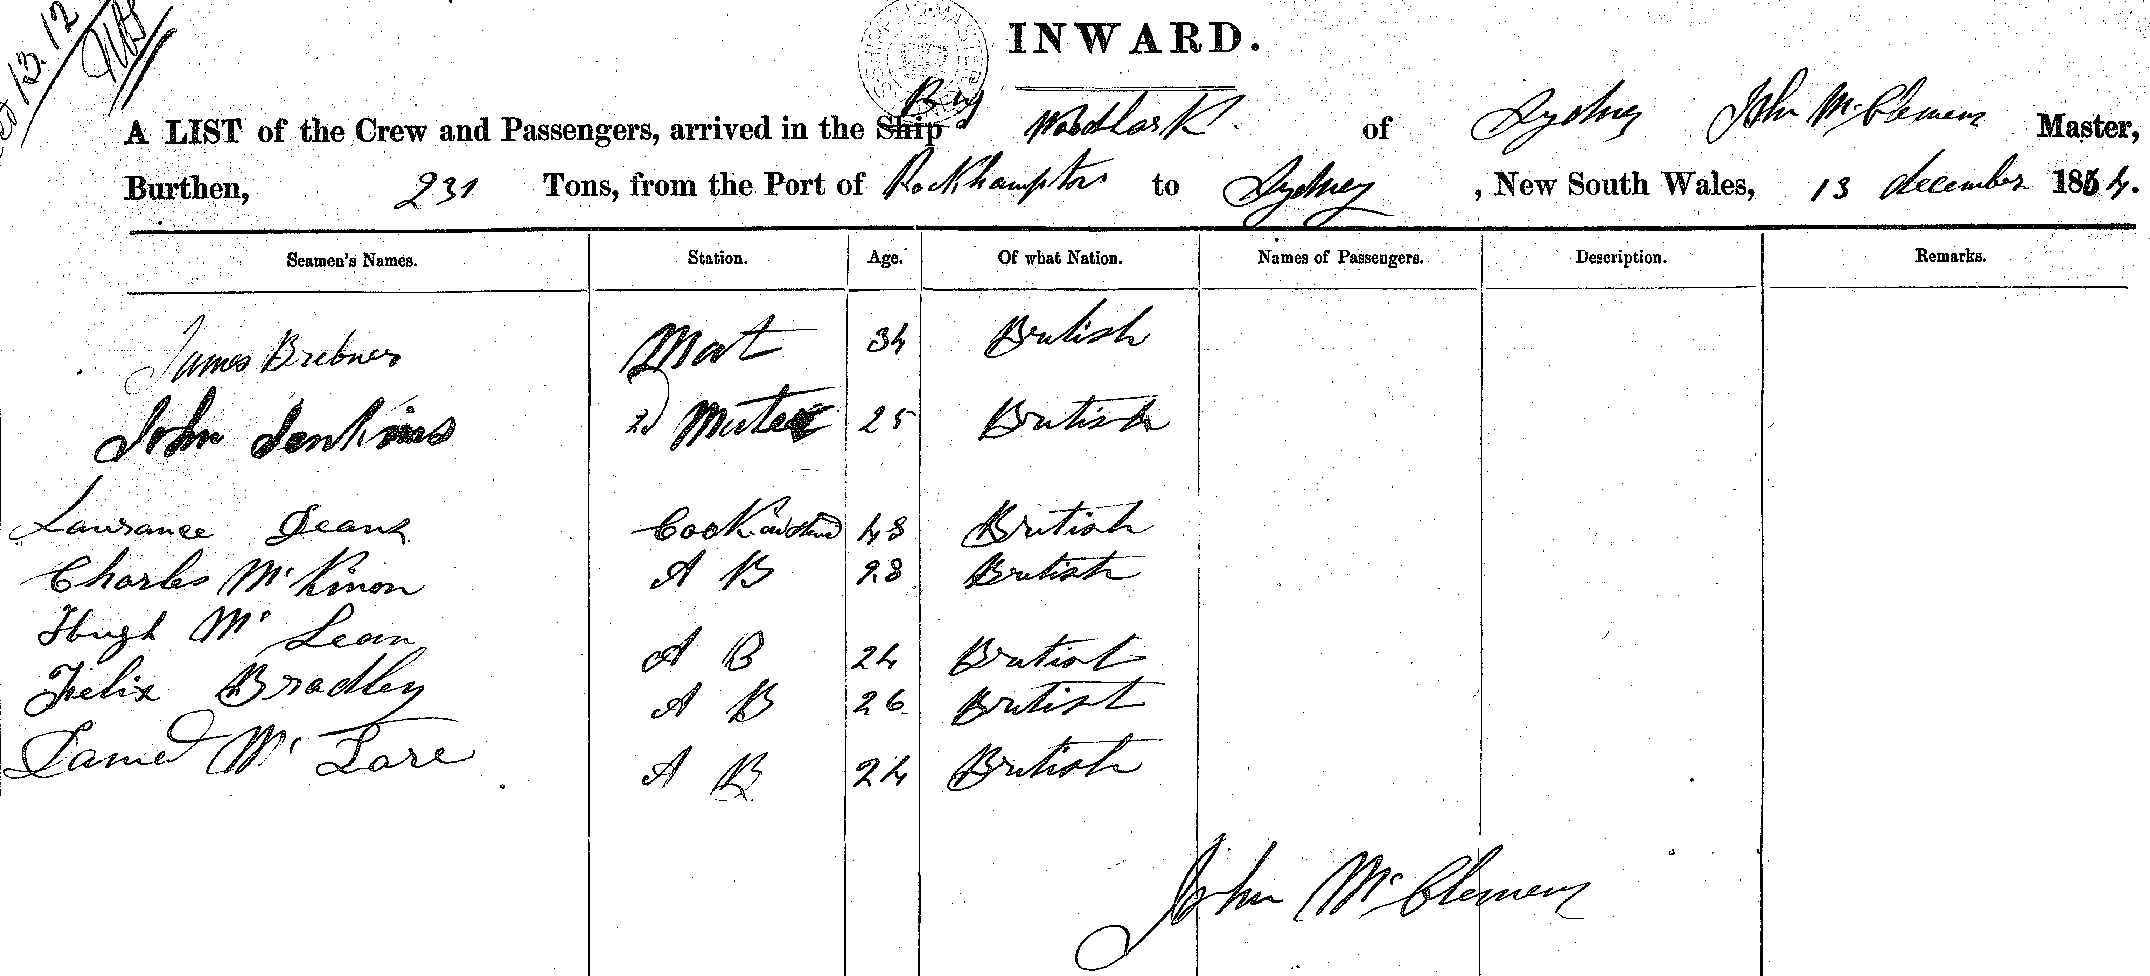 13.12
INWARD.
Brig
A LIST of the Crew and Passengers, arrived in the Ship Woodlark of Sydney John McClemens Master,
Burthen, 231 Tons, from the Port of Rockhampton to Sydney, New South Wales, 13 december 1864.
Seamen's Names. Station. Age. Of what Nation. Names of Passengers. Description. Remarks.
James Brebner Mat 34 British
John Jenkins 2d Mate 25 British
Lawrance Deans Cook 48 British
Charles McKinon A B 28 British
Hugh Mc Lean A B 24 British
Felix Bradley A B 26 British
James Mc A B 24 British
John McClemens